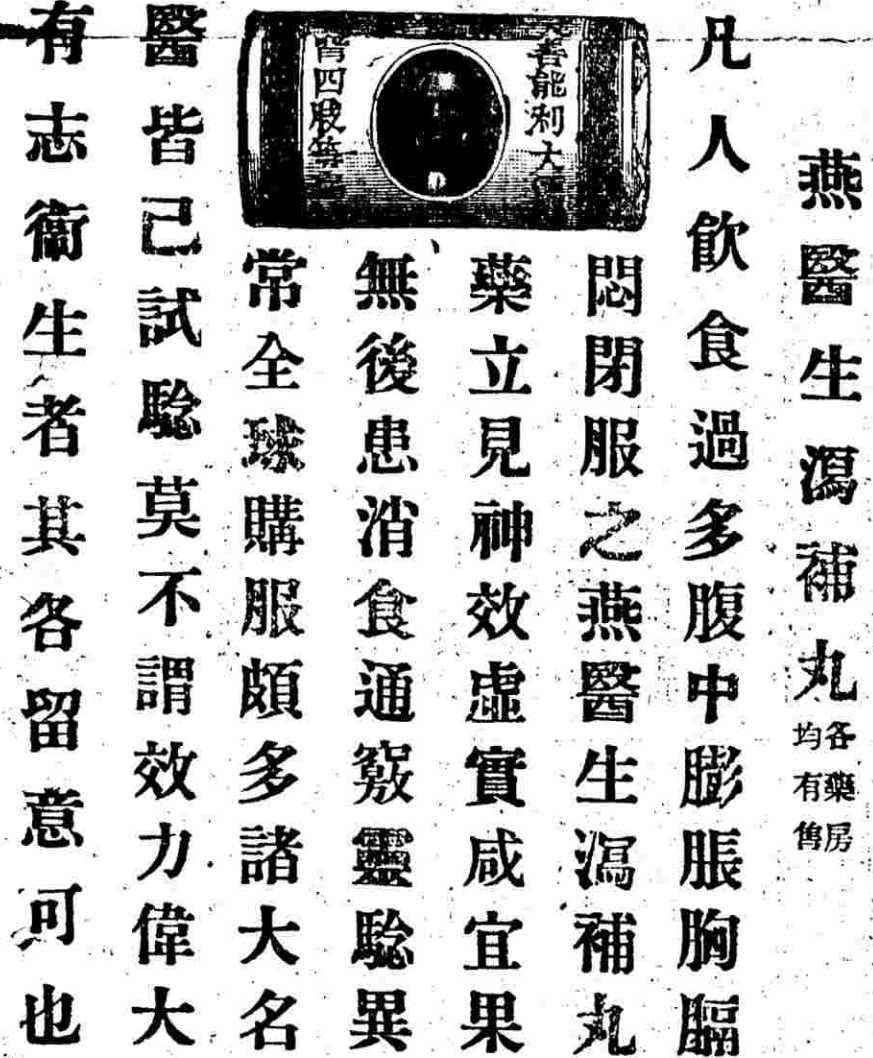 燕醫生瀉補丸
各藥房
均有售
凡人飲食過多腹中膨脹胸膈
悶閉服之燕醫生瀉補丸
藥立見神效虛實咸宜果
無後患消食通竅靈騐異
常全球購服頗多諸大名
醫皆已試騐莫不謂效力偉大
有志衛生者其各留意可也
善能利大
四肢等